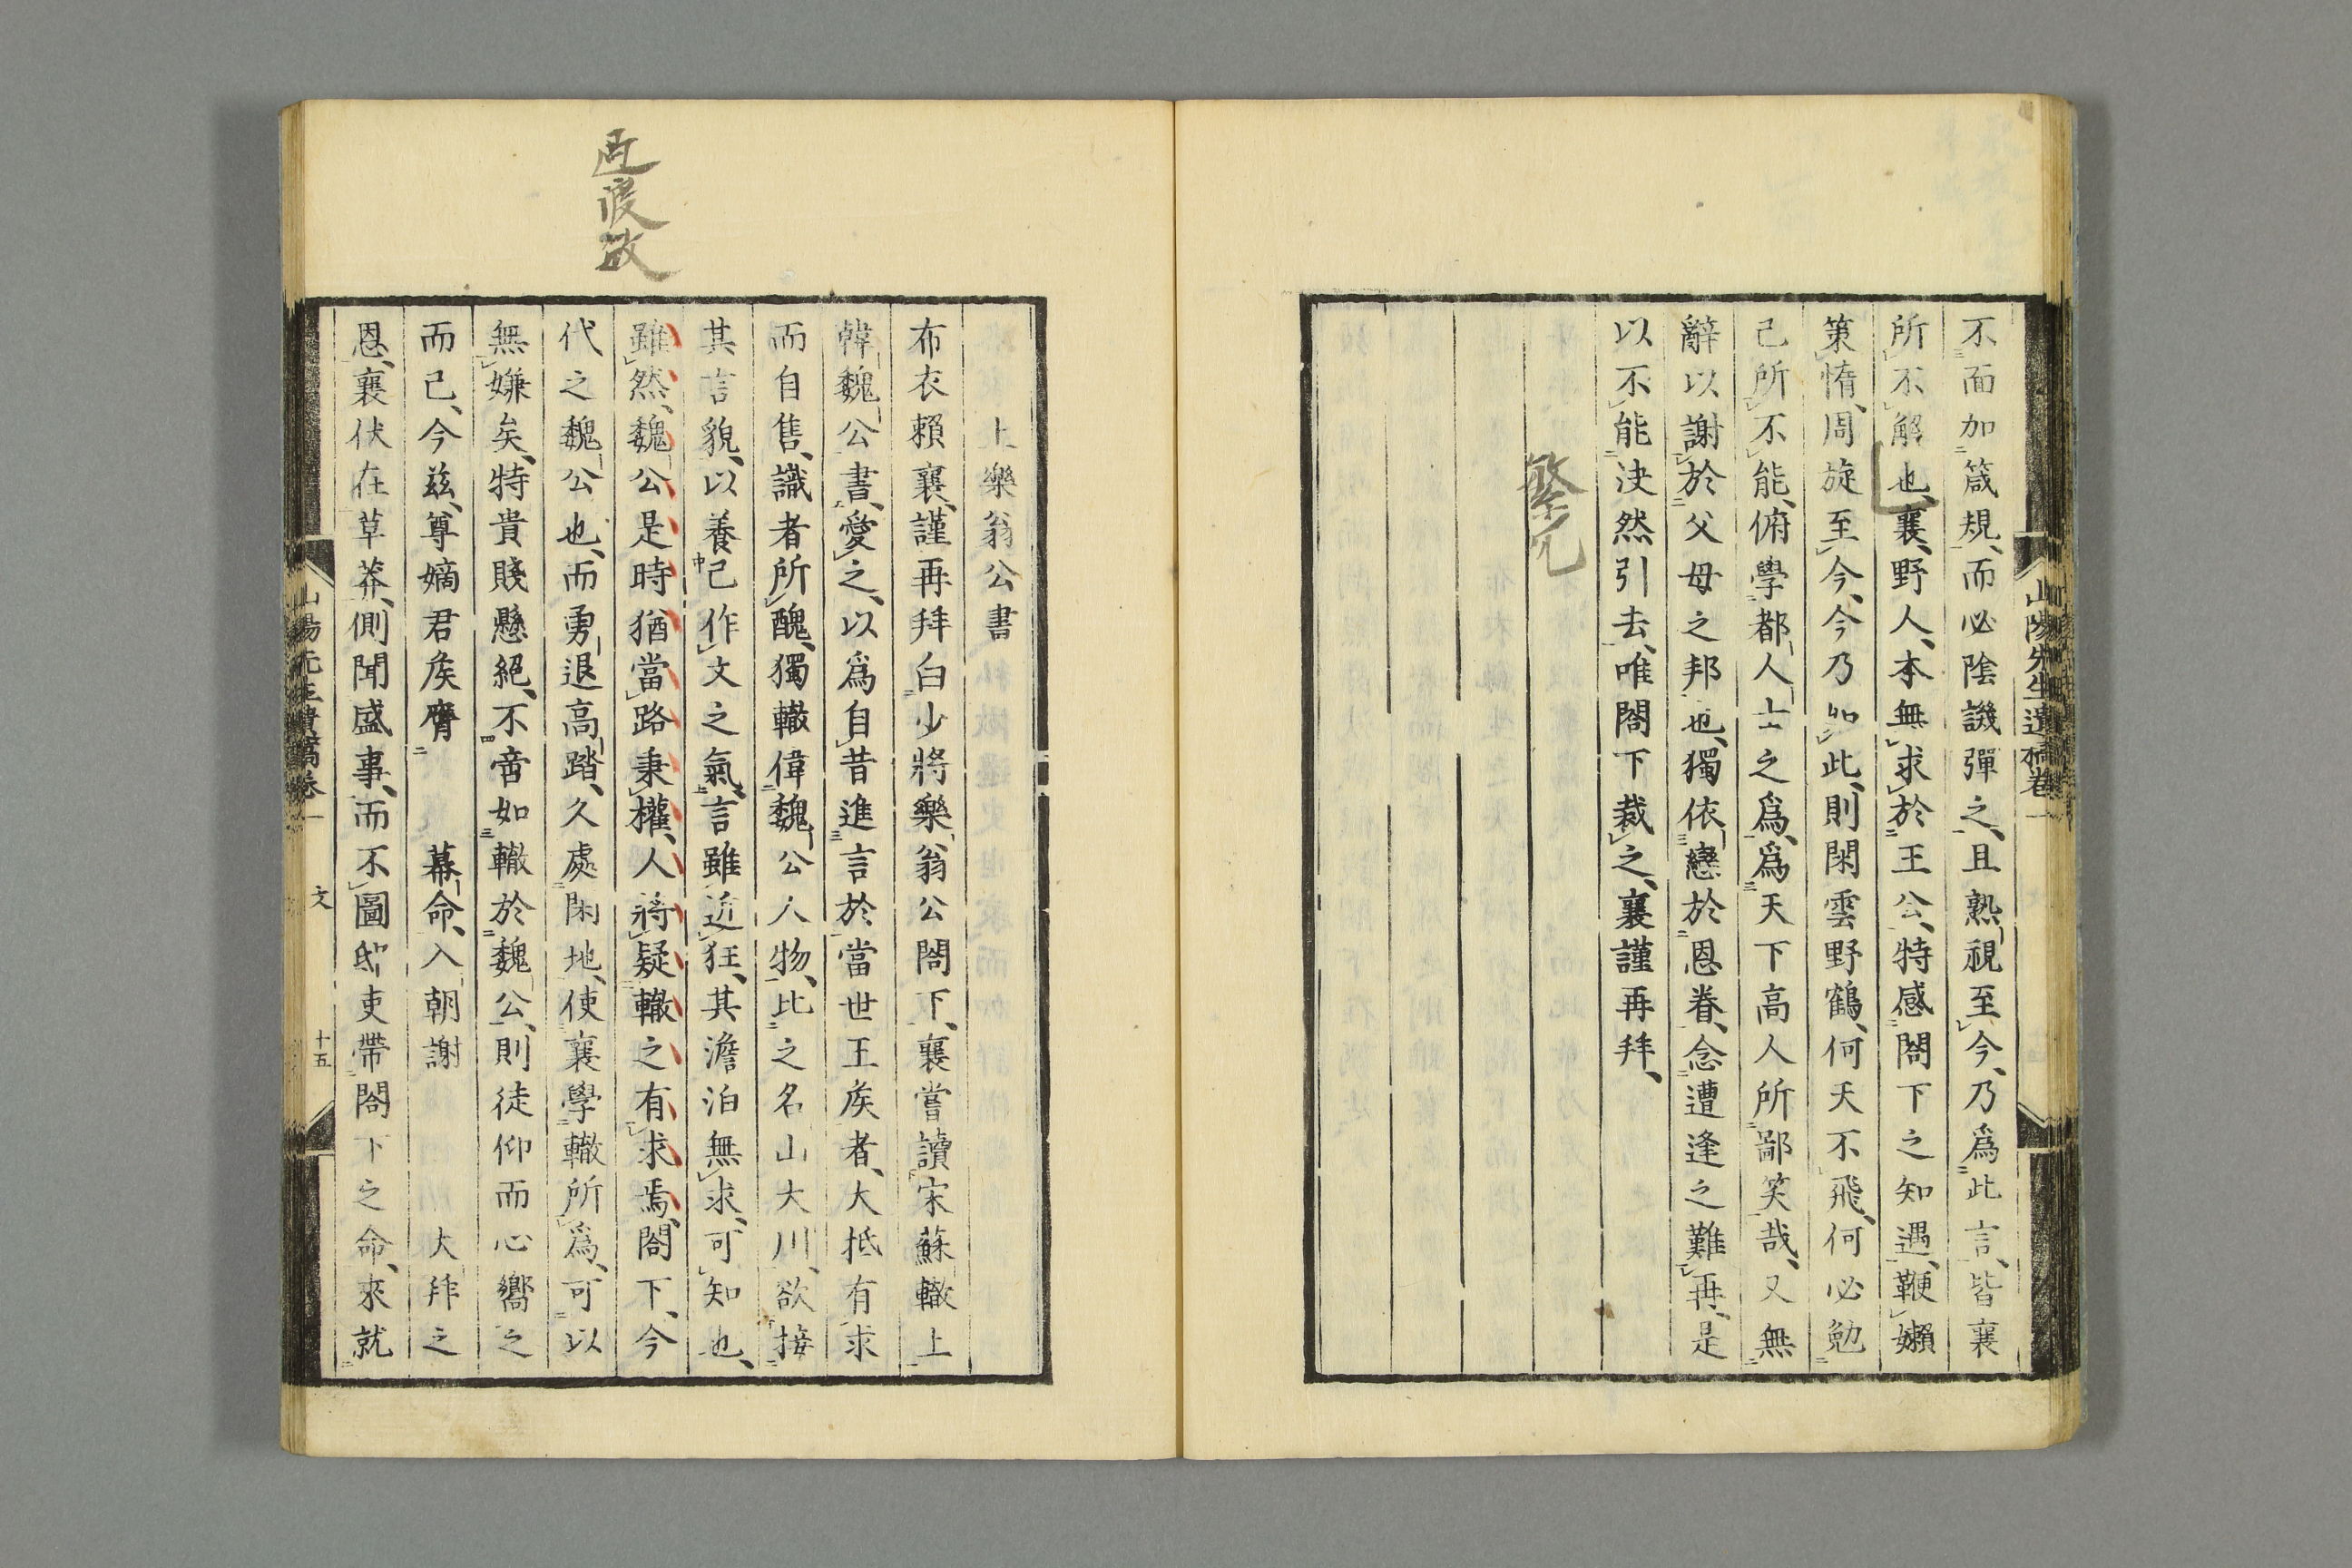 山陽先生遺稿卷一
不面加箴規、而必陰譏彈之、且熟視至今、乃爲此言、皆襄
所不解也、襄、野人、本無求於王公、特感閤下之知遇、鞭嬾
策惰、周旋至今、今乃如此、則閑雲野鶴、何天不飛、何必勉
己所不能、俯學都人士之爲、爲天下高人所鄙笑哉、又無
辭以謝於父母之邦也、獨依戀於恩眷、念遭逢之難再、是
以不能決然引去、唯閤下裁之、襄謹再拜、
繁冗
上樂翁公書
布衣賴襄、謹再拜白少將樂翁公閤下、襄嘗讀宋蘇轍上
韓魏公書、愛之、以爲自昔進言於當世王矦者、大抵有求
而自售、識者所醜、獨轍偉魏公人物、比之名山大川、欲接
其言貌、以養己作文之氣、言雖近狂、其澹泊無求、可知也、
雖然、魏公是時猶當路秉權、人將疑轍之有求焉、閤下、今
代之魏公也、而勇退高踏、久處閑地、使襄學轍所爲、可以
無嫌矣、特貴賤懸絕、不啻如轍於魏公、則徒仰而心嚮之
而己、今茲、尊嫡君矦膺 幕命、入朝謝 大拜之
恩、襄伏在草莽、側聞盛事、而不圖邸吏帶閤下之命、來就
山陽先生遺稿卷一 文 十五